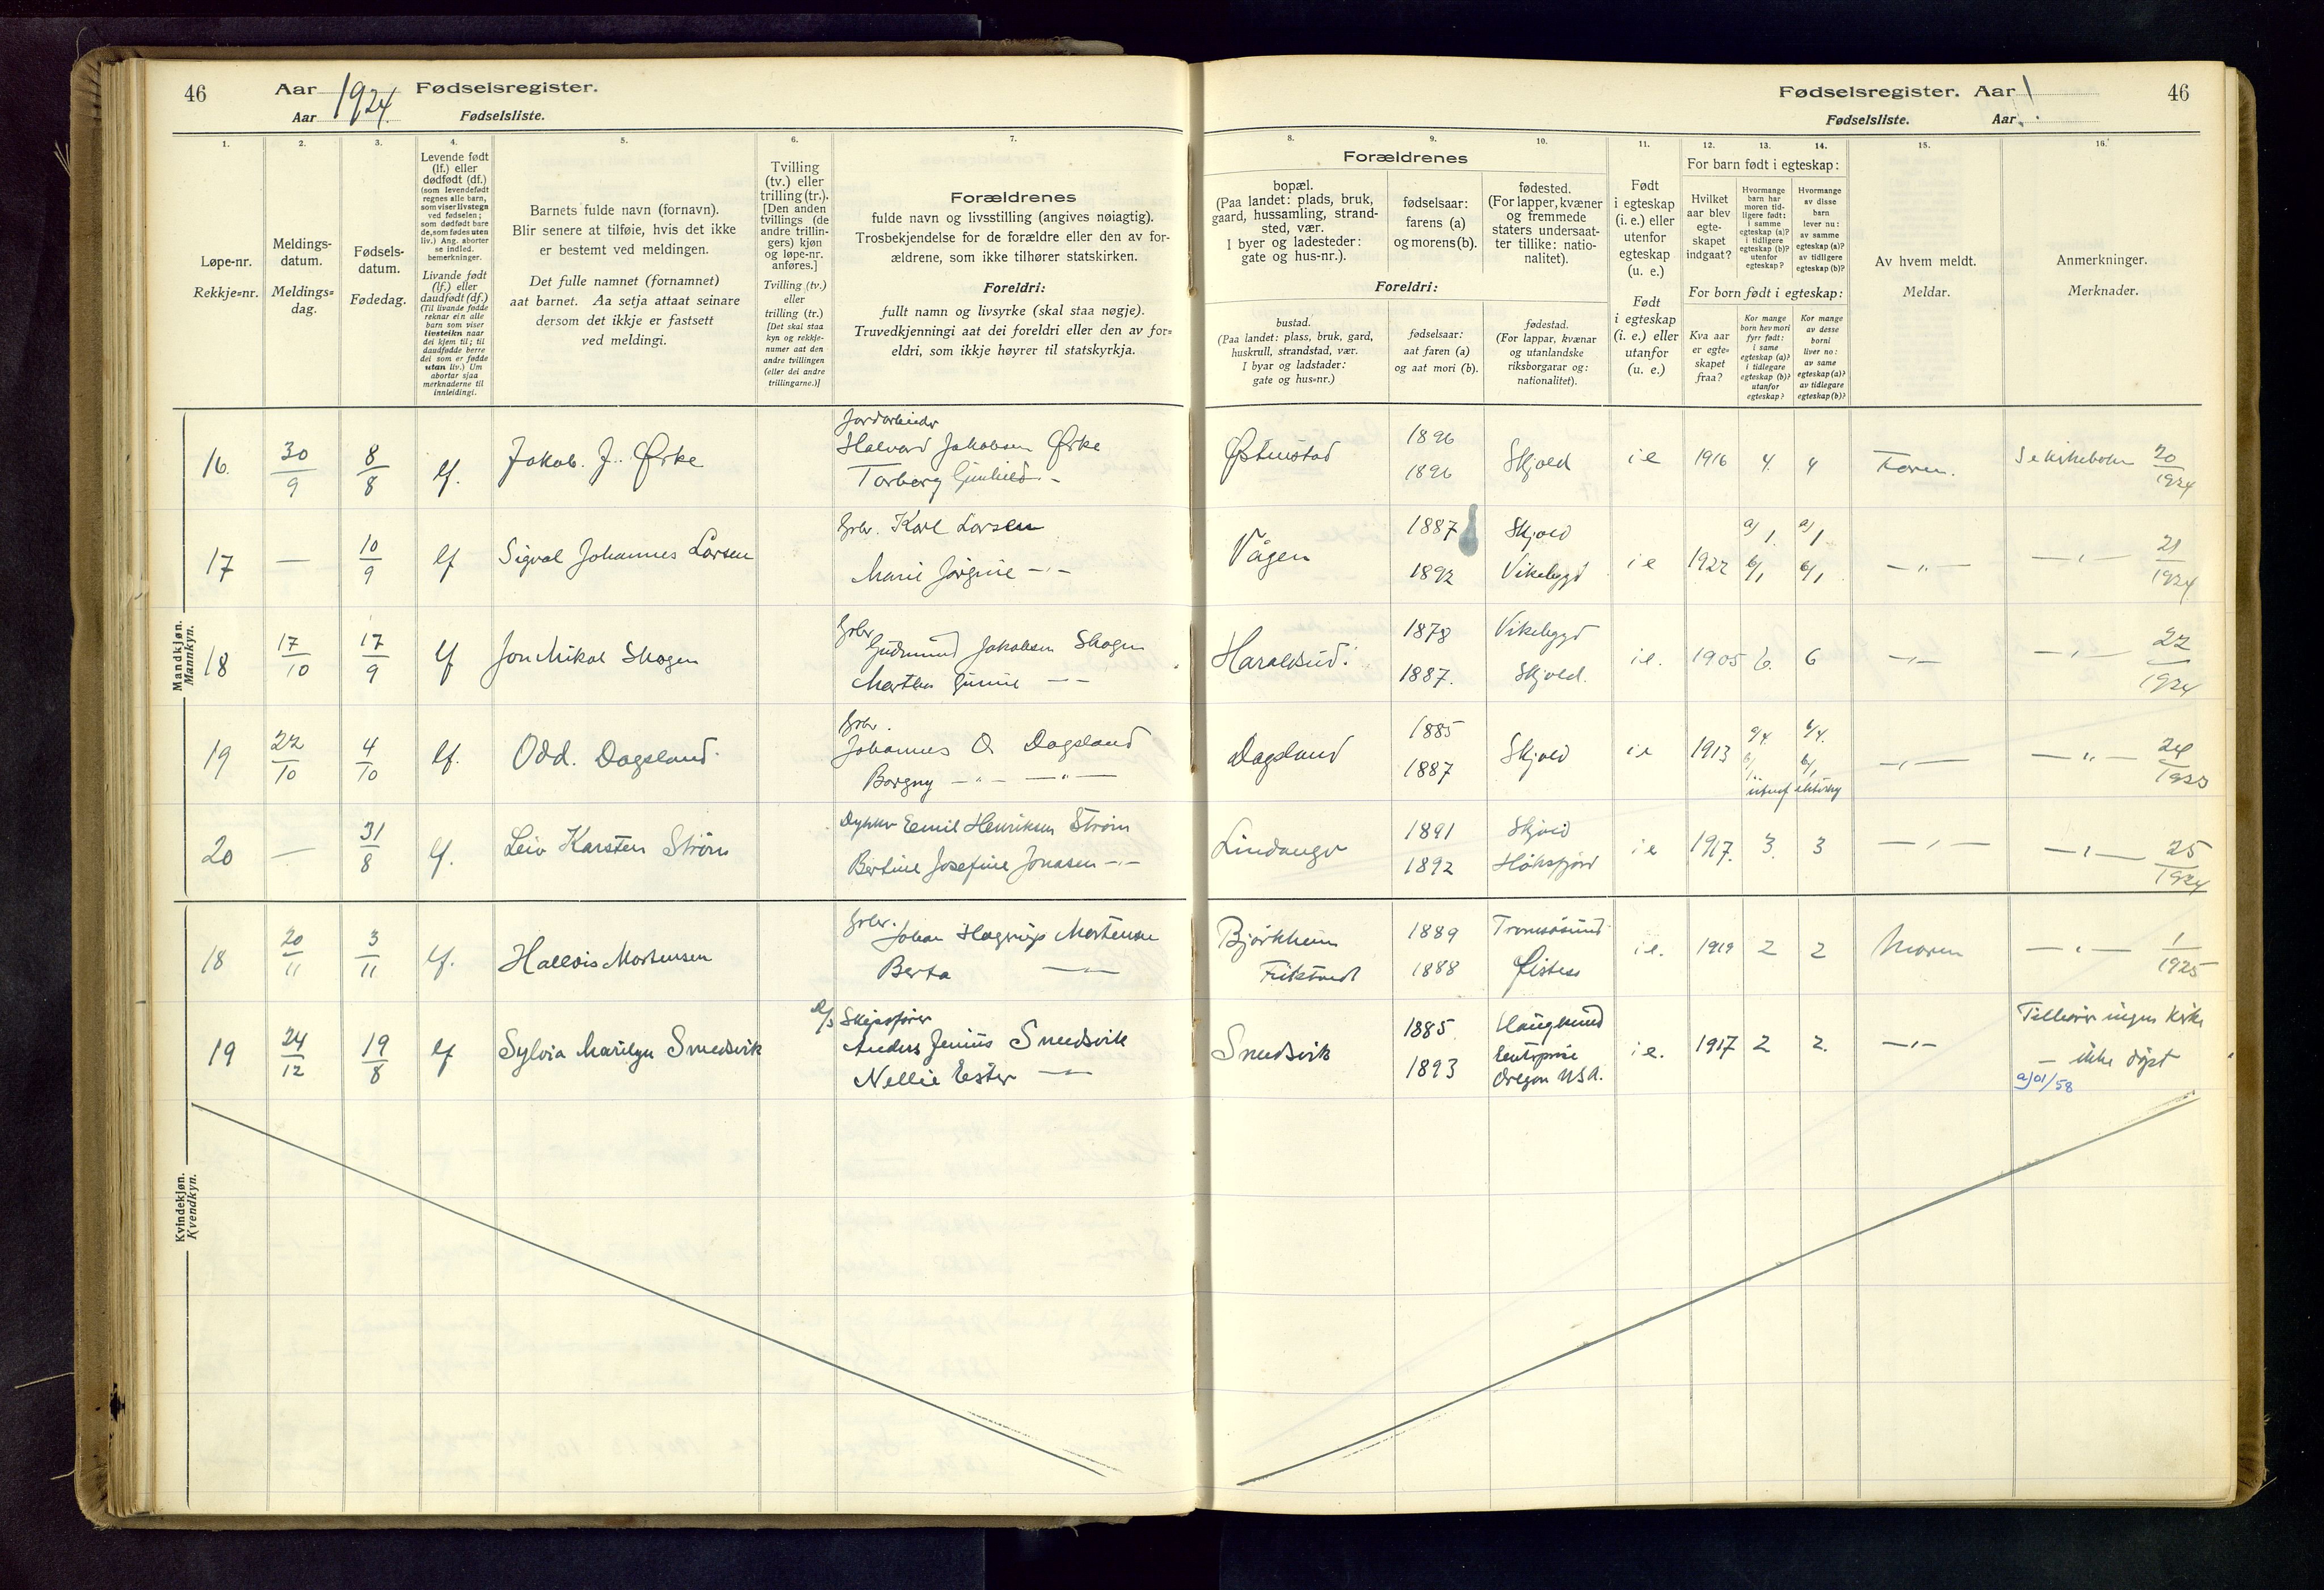 46 Aar 1924. Fødselsregister.
Aar Fødselsliste.
Fødselsregister. Aar 46
Fødselsliste. Aar
1. 2. 3. 4. 5. 6. 7. 8. 9. 10. 11. 12. 13. 14. 15. 16.
Løpe-nr.
Rekkje=nr.
Meldings-
datum.
Meldings=
dag.
Fødsels-
datum.
Fødedag.
Levende født
(lf.) eller
dødfødt (df.)
(som levendefødt
regnes alle barn,
som viser livstegn
ved fødselen;
som dødfødt bare
de, som fødes uten
liv.) Ang. aborter
se indled.
bemerkninger.
Livande født
(lf.) eller
daudfødt (df.)
(Til livande fødde
reknar ein alle
born som viser
livsteikn naar
dei kjem til; til
daudfødde berre
dei som er fødde
utan liv.) Um
abortar sjaa
merknaderne til
innleidingi.
Barnets fulde navn (fornavn).
Blir senere at tilføie, hvis det ikke
er bestemt ved meldingen.
Det fulle namnet (fornamnet)
aat barnet. Aa setja attaat seinare
dersom det ikkje er fastsett
ved meldingi.
Tvilling
(tv.) eller
trilling (tr.).
[Den anden
tvillings (de
andre trillin-
gers) kjøn
og løpe-nr.
anføres.]
Tvilling (tv.)
eller
trilling (tr.)
[Det skal staa
kyn og rekkje-
numer aat den
andre tvillingen
(eller dei andre
trillingarne.)]
Forældrenes
fulde navn og livsstilling (angives nøiagtig).
Trosbekjendelse for de forældre eller den av for-
ældrene, som ikke tilhører statskirken.
Foreldri:
fullt namn og livsyrke (skal staa nøgje).
Truvedkjenningi aat dei foreldri eller den av for=
eldri, som ikkje høyrer til statskyrkja.
Forældrenes
bopæl.
(Paa landet: plads, bruk,
gaard, hussamling, strand-
sted, vær.
I byer og ladesteder:
gate og hus-nr.).
fødselsaar:
farens (a)
og morens (b).
fødested.
(For lapper, kvæner
og fremmede
staters undersaat-
ter tillike: natio-
nalitet).
Foreldri:
bustad.
(Paa landet: plass, bruk, gard,
huskrull, strandstad, vær.
I byar og ladstader:
gate og hus=nr.)
fødselsaar:
aat faren (a)
og aat mori (b).
fødestad.
(For lappar, kvænar
og utanlandske
riksborgarar og:
nationalitet).
Født
i egteskap
(i. e.) eller
utenfor
egteskap
(u. e.)
Født
i egteskap
(i. e.) eller
utanfor
(u. e.)
For barn født i egteskap:
Hvilket
aar blev
egte-
skapet
indgaat?
Hvormange
barn har
moren tid-
ligere født:
i samme
egteskap (a)?
i tidligere
egteskap (b)?
utenfor
egteskap?
Hvormange
av disse
barn
lever nu:
av samme
egteskap (a)?
av tidligere
egteskap (b)?
For born født i egteskap:
Kva aar
er egte=
skapet
fraa?
Kor mange
born hev mori
fyrr født:
i same
egteskap (a)?
i tidlegare
egteskap (b)?
utanfor
egteskap?
Kor mange
av desse
borni
liver no:
av same
egteskap (a)?
av tidlegare
egteskap (b)?
Av hvem meldt.
Meldar.
Anmerkninger.
Merknader.
Mandkjøn.
Mannkyn.
16. 30/9 8/8 lf. Jakob. J. Ørke
Jordarbeider
Halvard Jakobsen Ørke
Torborg Gunhild -
1896 1896 Skjold i e 1916 4. 4 Faren. 20/1924
17 — 10/9 lf Sigval Johannes Larsen
Grbr. Karl Larsen
Marie Jørgine -"-
Vågen 1887 1892 Skjold Vikebygd i e 1922 a/1. b/1 a/1 b/1 —"— —"— 21/1924
18 17/10 17/9 lf Jon Mikal Skogen
Grbr. Gudmund Jakobsen Skogen
Martha Gurine — —
1878 1887. Vikebygd Skjold. i e. 1905 6. 6 —"— —"— 22/1924
19 22/10 4/10 lf. Odd. Dagsland.
Grbr.
Johannes O. Dagsland
Borgny —"— —"—
Dagsland 1885 1887 Skjold i e 1913 a/4. b/1 b/4. b/1 —"— —"— 24
20 — 31/8 lf. Leiv Karsten Strøm
Dykker Emil Henriksen Strøm
Bertine Josefine Jonasen —"—
1891 1892 Skjold i e 1917. 3. 3 —"— —"— 25/1924
Kvindekjøn.
Kvendkyn.
18 20/11 3/11 lf. Haldis Mortensen
Grbr. Johan Hagerup Mortensen
Berta —"—
Bjørkheim
1889 1888 Tromsøsund i e. 1919 2 2 Moren —"— 1/1925
19 24/12 19/8 lf Sylvia Marilyn Smedsvik
D/S Skipsfører
Anders Junius Smedsvik
Nellie Ester —"—
Smedsvik 1885 1893 Haugesund
Enterprise
Oregon U.S.A. i e. 1917 2 2. —"—
Tilhører ingen kirke
— ikke døpt